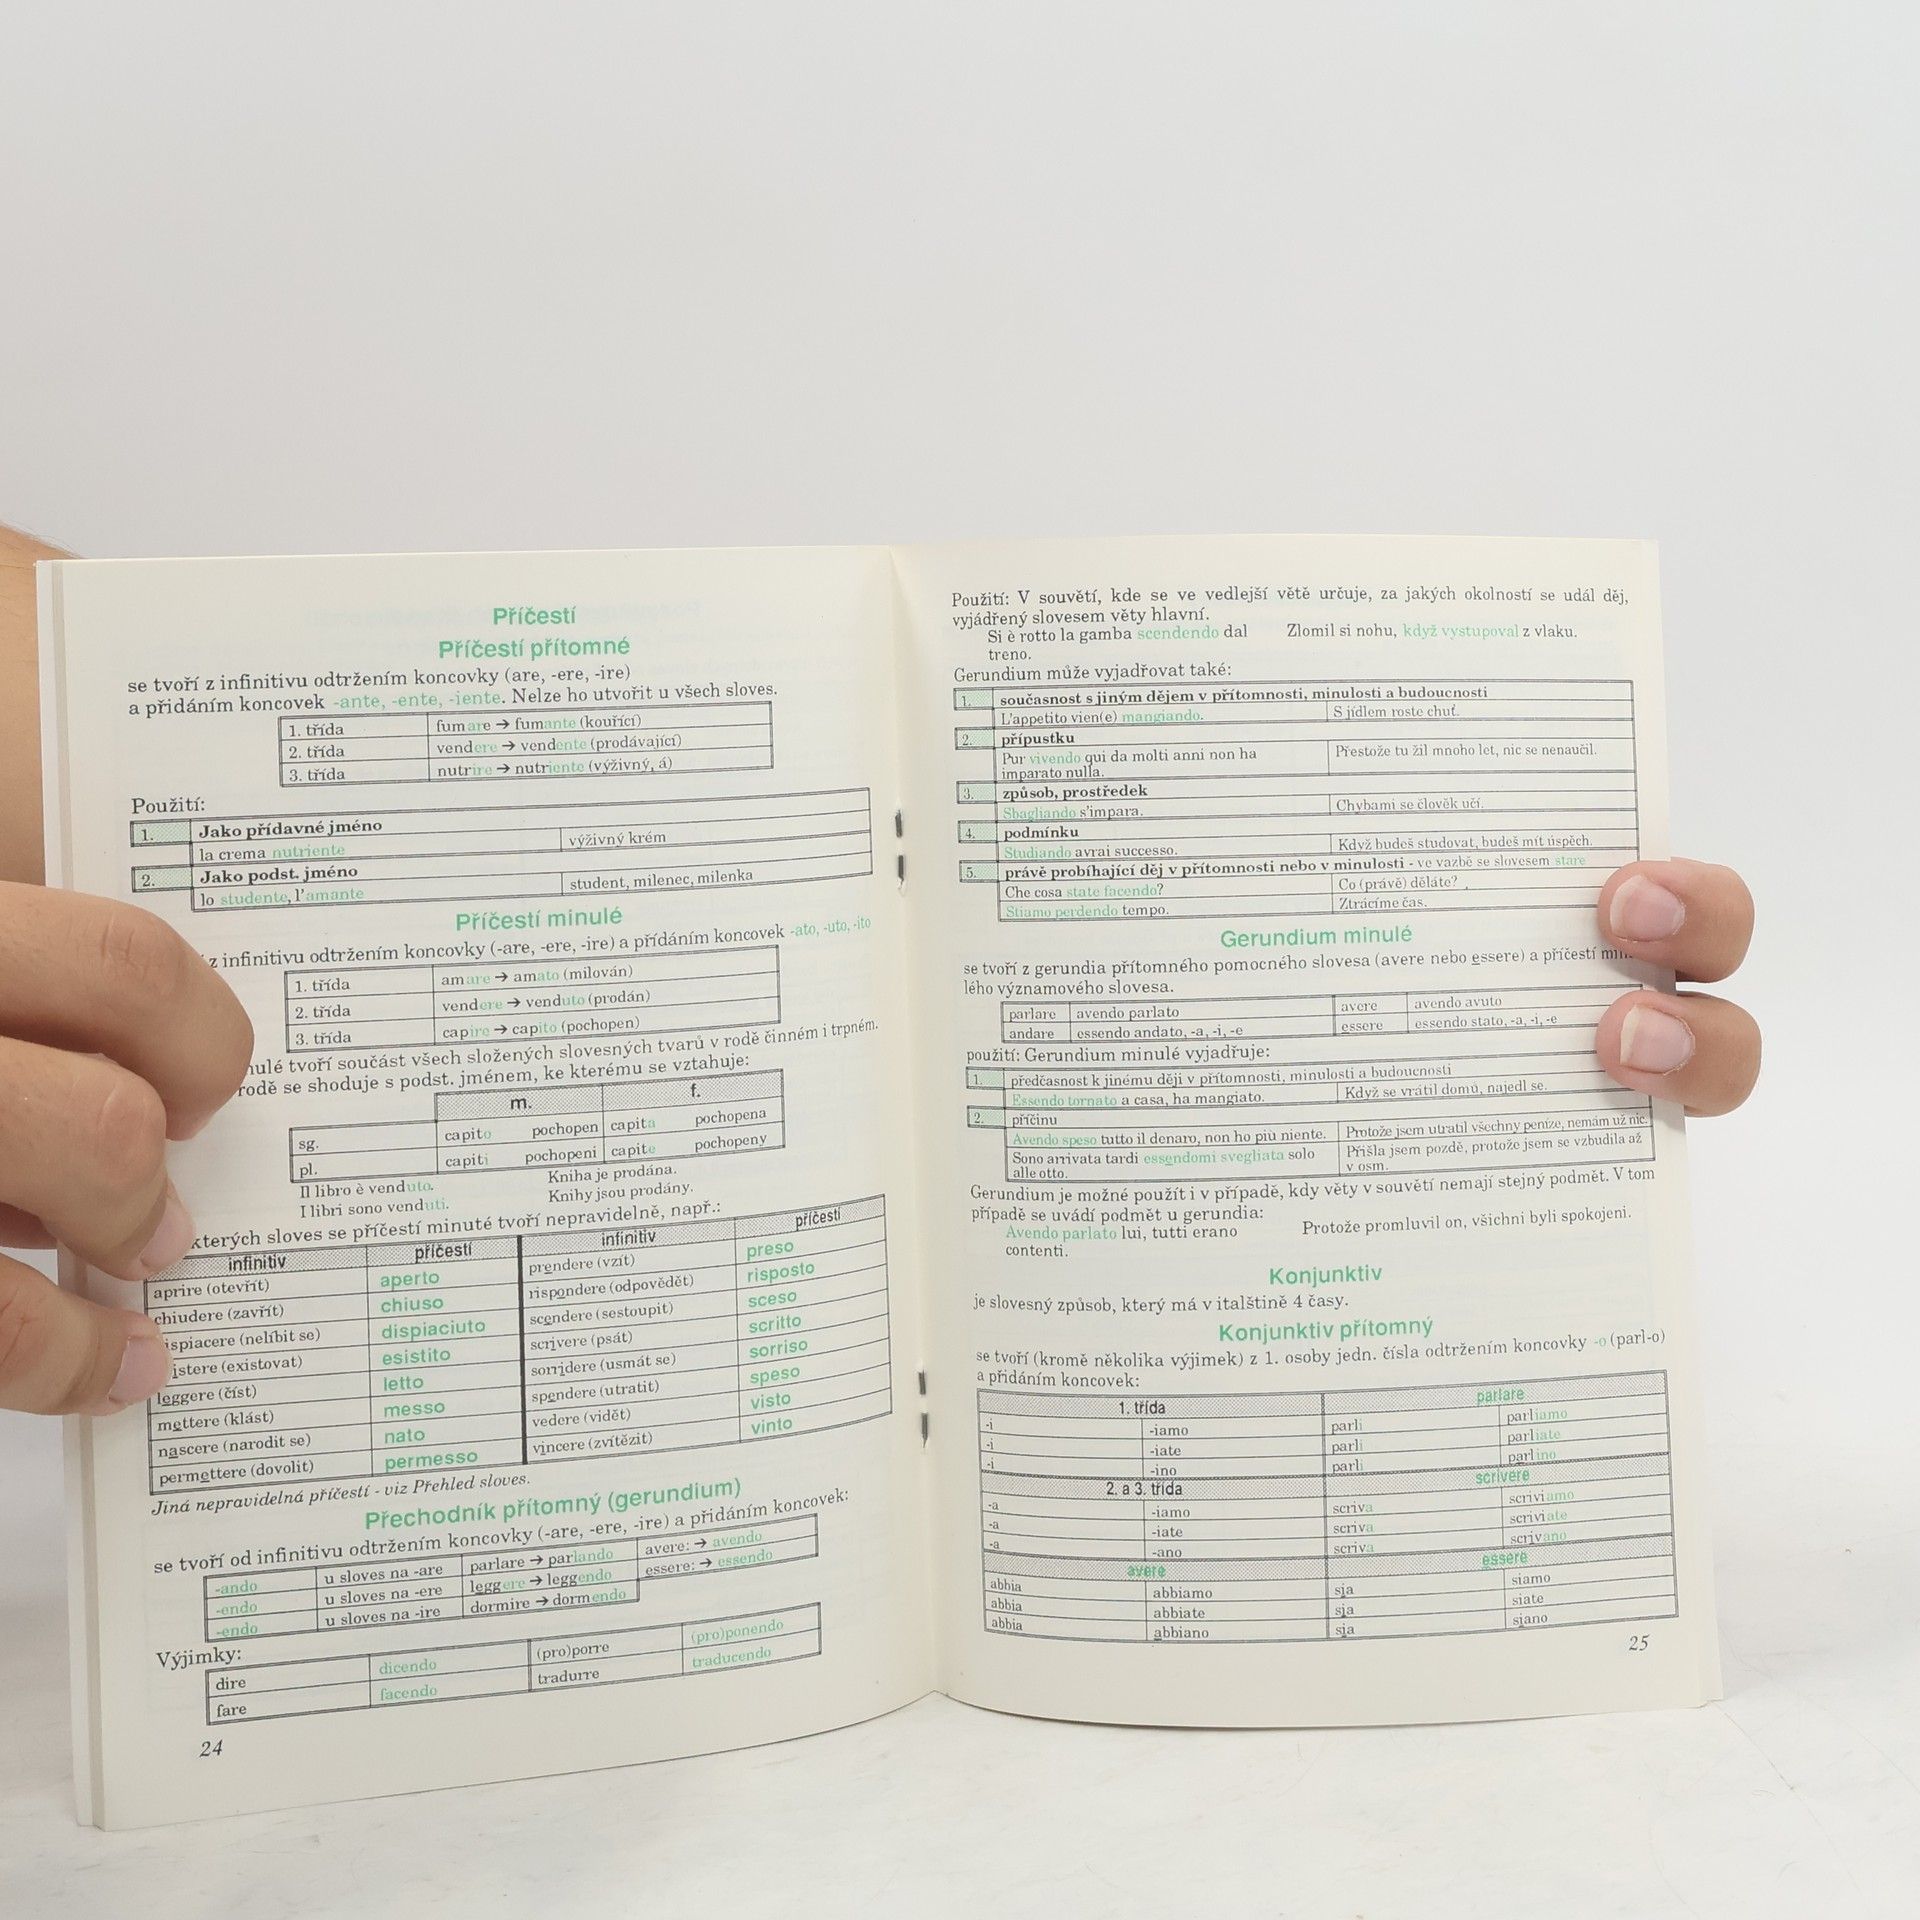 Příčestí
Příčestí přítomné
se tvoří z infinitivu odtržením koncovky (are, -ere, -ire)
a přidáním koncovek -ante, -ente, -iente. Nelze ho utvořit u všech sloves.
1. třída fumare → fumante (kouřící)
2. třída vendere → vendente (prodávající)
3. třída nutrire → nutriente (výživný, á)
Použití:
1. Jako přídavné jméno
la crema nutriente výživný krém
2. Jako podst. jméno
lo studente, l'amante student, milenec, milenka
Příčestí minulé
z infinitivu odtržením koncovky (-are, -ere, -ire) a přidáním koncovek -ato, -uto, -ito
1. třída amare → amato (milován)
2. třída vendere → venduto (prodán)
3. třída capire → capito (pochopen)
tvoří součást všech složených slovesných tvarů v rodě činném i trpném.
rodě se shoduje s podst. jménem, ke kterému se vztahuje:
m. f.
sg. capito pochopen capita pochopena
pl. capiti pochopeni capite pochopeny
Il libro è venduto. Kniha je prodána.
I libri sono venduti. Knihy jsou prodány.
sloves se příčestí minuté tvoří nepravidelně, např.:
infinitiv příčestí infinitiv příčestí
aprire (otevřít) aperto prendere (vzít) preso
chiudere (zavřít) chiuso rispondere (odpovědět) risposto
(nelíbit se) dispiaciuto scendere (sestoupit) sceso
(existovat) esistito scrivere (psát) scritto
leggere (číst) letto sorridere (usmát se) sorriso
mettere (klást) messo spendere (utratit) speso
nascere (narodit se) nato vedere (vidět) visto
permettere (dovolit) permesso vincere (zvítězit) vinto
Jiná nepravidelná příčestí - viz Přehled sloves.
Přechodník přítomný (gerundium)
se tvoří od infinitivu odtržením koncovky (-are, -ere, -ire) a přidáním koncovek:
-ando u sloves na -are parlare → parlando avere: → avendo
-endo u sloves na -ere leggere → leggendo essere: → essendo
-endo u sloves na -ire dormire → dormendo
Výjimky:
dire dicendo (pro)porre (pro)ponendo
fare facendo tradurre traducendo
24
Použití: V souvětí, kde se ve vedlejší větě určuje, za jakých okolností se udál děj,
vyjádřený slovesem věty hlavní.
Si è rotto la gamba scendendo dal Zlomil si nohu, když vystupoval z vlaku.
treno.
Gerundium může vyjadřovat také:
1. současnost s jiným dějem v přítomnosti, minulosti a budoucnosti
L'appetito vien(e) mangiando. S jídlem roste chuť.
2. přípustku
Pur vivendo qui da molti anni non ha Přestože tu žil mnoho let, nic se nenaučil.
imparato nulla.
3. způsob, prostředek
Sbagliando s'impara. Chybami se člověk učí.
4. podmínku
Studiando avrai successo. Když budeš studovat, budeš mít úspěch.
5. právě probíhající děj v přítomnosti nebo v minulosti - ve vazbě se slovesem stare
Che cosa state facendo? Co (právě) děláte?
Stiamo perdendo tempo. Ztrácíme čas.
Gerundium minulé
se tvoří z gerundia přítomného pomocného slovesa (avere nebo essere) a příčestí
lého významového slovesa.
parlare avendo parlato avere avendo avuto
andare essendo andato, -a, -i, -e essere essendo stato, -a, -i, -e
použití: Gerundium minulé vyjadřuje:
1. předčasnost k jinému ději v přítomnosti, minulosti a budoucnosti
Essendo tornato a casa, ha mangiato. Když se vrátil domů, najedl se.
2. příčinu
Avendo speso tutto il denaro, non ho più niente. Protože jsem utratil všechny peníze, nemám už nic.
Sono arrivata tardi essendomi svegliata solo Přišla jsem pozdě, protože jsem se vzbudila až
alle otto. v osm.
Gerundium je možné použít i v případě, kdy věty v souvětí nemají stejný podmět. V tom
případě se uvádí podmět u gerundia:
Avendo parlato lui, tutti erano Protože promluvil on, všichni byli spokojeni.
contenti.
Konjunktiv
je slovesný způsob, který má v italštině 4 časy.
Konjunktiv přítomný
se tvoří (kromě několika výjimek) z 1. osoby jedn. čísla odtržením koncovky -o (parl-o)
a přidáním koncovek:
1. třída parlare
-i -iamo parli parliamo
-i -iate parli parliate
-i -ino parli parlino
2. a 3. třída scrivere
-a -iamo scriva scriviamo
-a -iate scriva scriviate
-a -ano scriva scrivano
avere essere
abbia abbiamo sia siamo
abbia abbiate sia siate
abbia abbiano sia siano
25